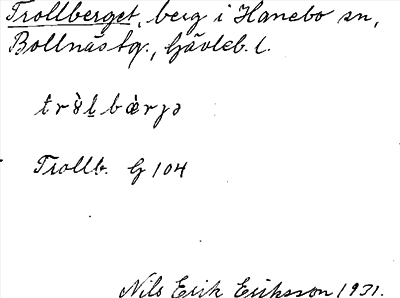 Trollberget, berg i Hanebo sn,
Bollnästg., Gävleb. l.
trɤ̀l̠bæ̀rjə
Trollb. G 104
Nils Erik Eriksson 1931.